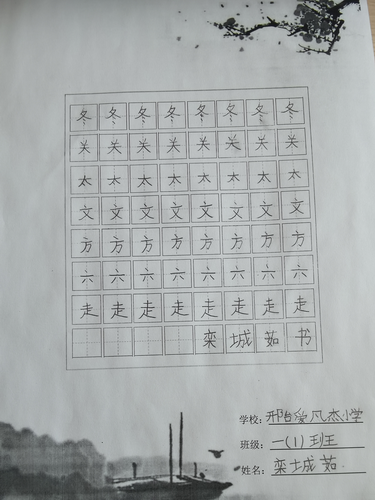 冬冬冬冬冬冬冬冬
关关关关关关关关
太太太太太太太太
文文文文文文文文
方方方方方方方方
六六六六六六六六
走走走走走走走走
栾城茹书
学校：邢台爱凡杰小学
班级：一(1)班
姓名：栾城茹